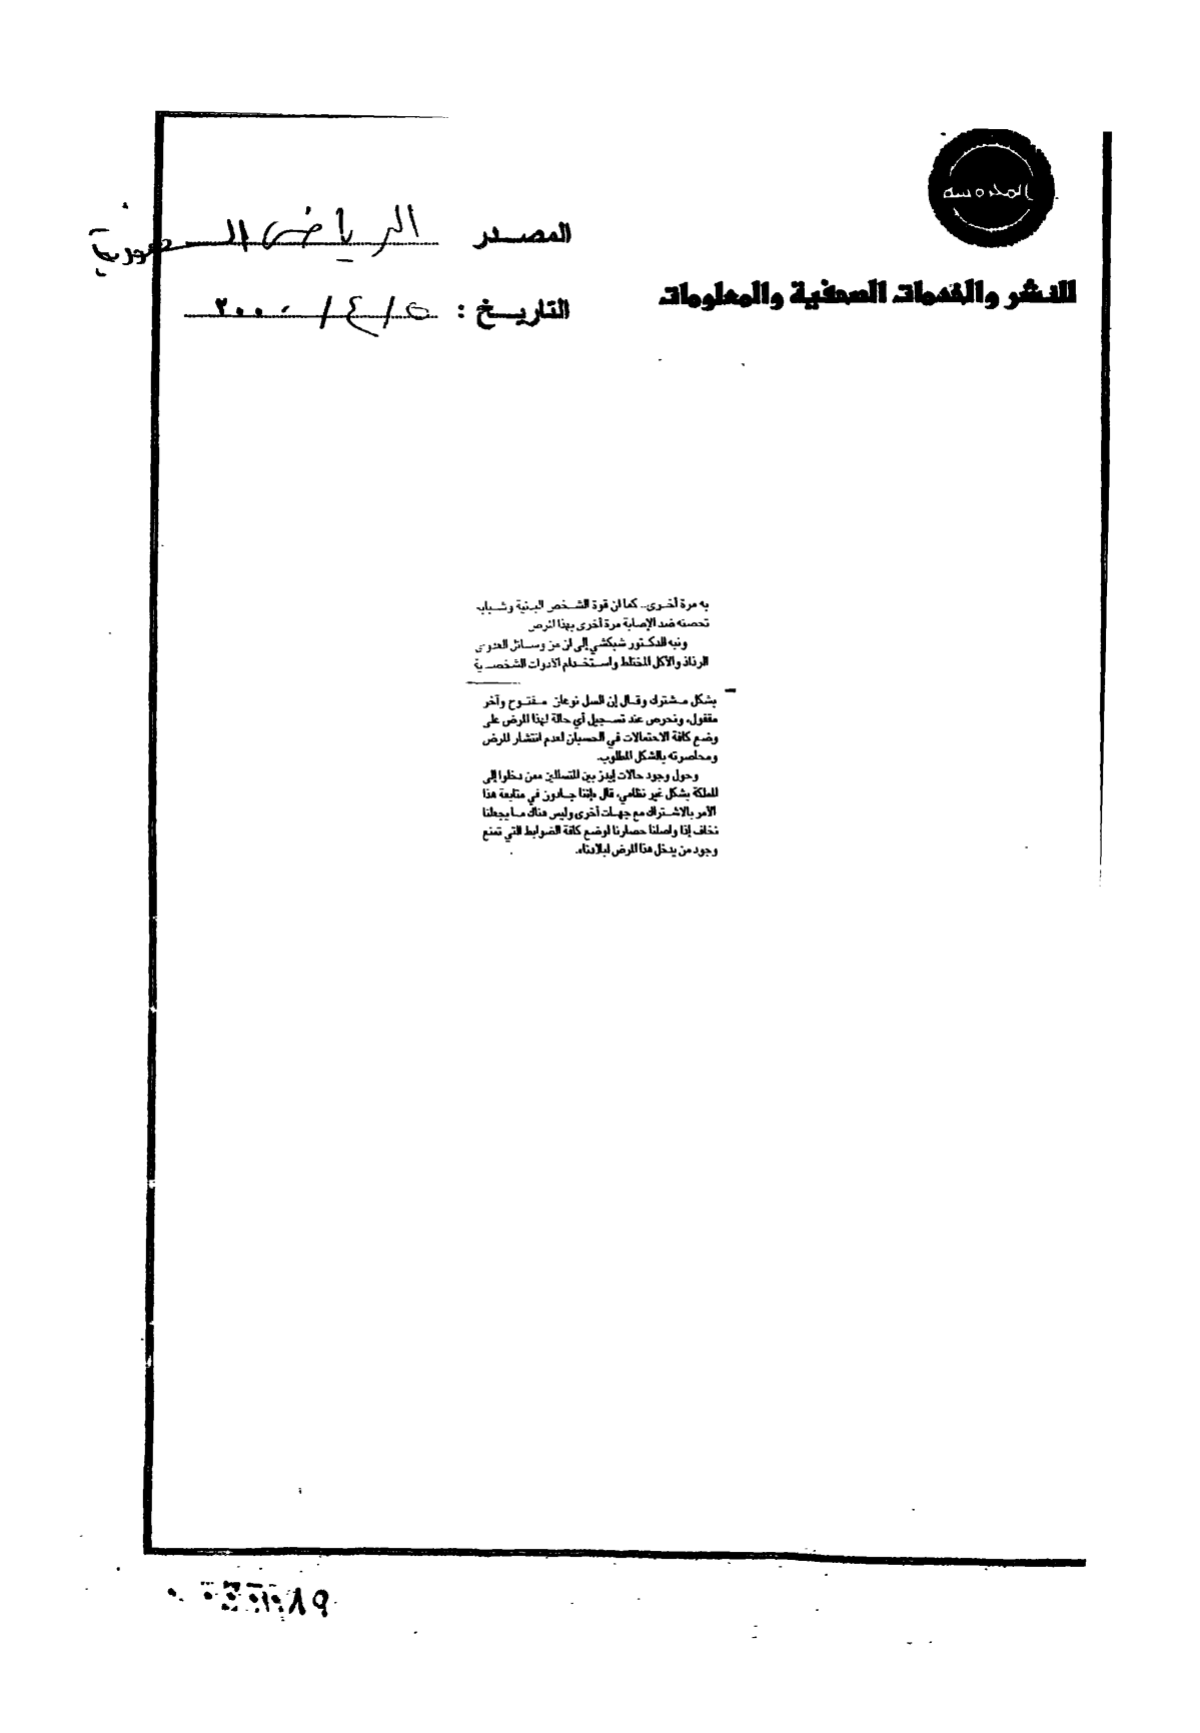 المحروسة
للنشر والخدمات الصحفية والمعلومات
المصدر الرياض السعودية
التاريخ : ٥ / ٤ / ٢٠٠٠
به مرة أخرى.. كما ان قوة الشخص البنية وشبابه
تحصنه ضد الإصابة مرة أخرى بهذا المرض
ونبه الدكتور شبكشي إلى ان من وسائل العدوى
الرذاذ والأكل المختلط واستخدام الادوات الشخصية
بشكل مشترك وقال إن السل نوعان مفتوح وآخر
مقفول، ونحرص عند تسجيل أي حالة لهذا المرض على
وضع كافة الاحتمالات في الحسبان لعدم انتشار المرض
ومحاصرته بالشكل المطلوب.
وحول وجود حالات إيدز بين المتسللين ممن دخلوا إلى
المملكة بشكل غير نظامي، قال «إننا جادون في متابعة هذا
الأمر بالاشتراك مع جهات أخرى وليس هناك ما يجعلنا
نخاف إذا واصلنا حصارنا لوضع كافة الضوابط التي تمنع
وجود من يدخل هذا المرض لبلادنا».